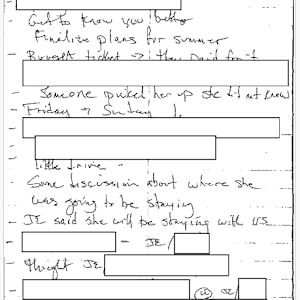 Get to know you better
Finalize plans for summer
Bought ticket → they paid for it
Someone picked her up she did not know
Friday → Sunday
little time -
Some discussion about where she
was going to be staying
JE said she will be staying with us
- JE/
thought JE
JE/